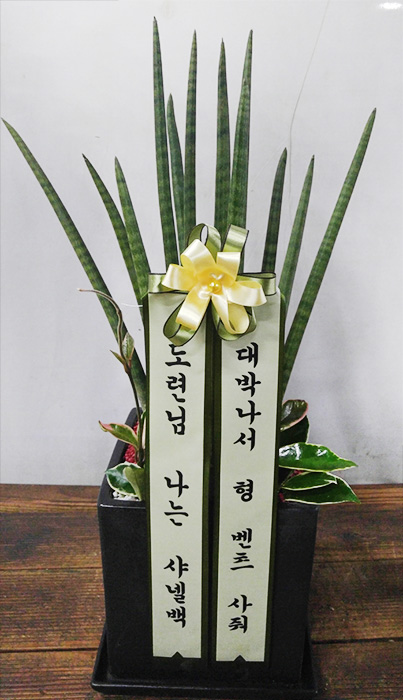 대박나서 형 벤츠 사줘
도련님 나는 샤넬백